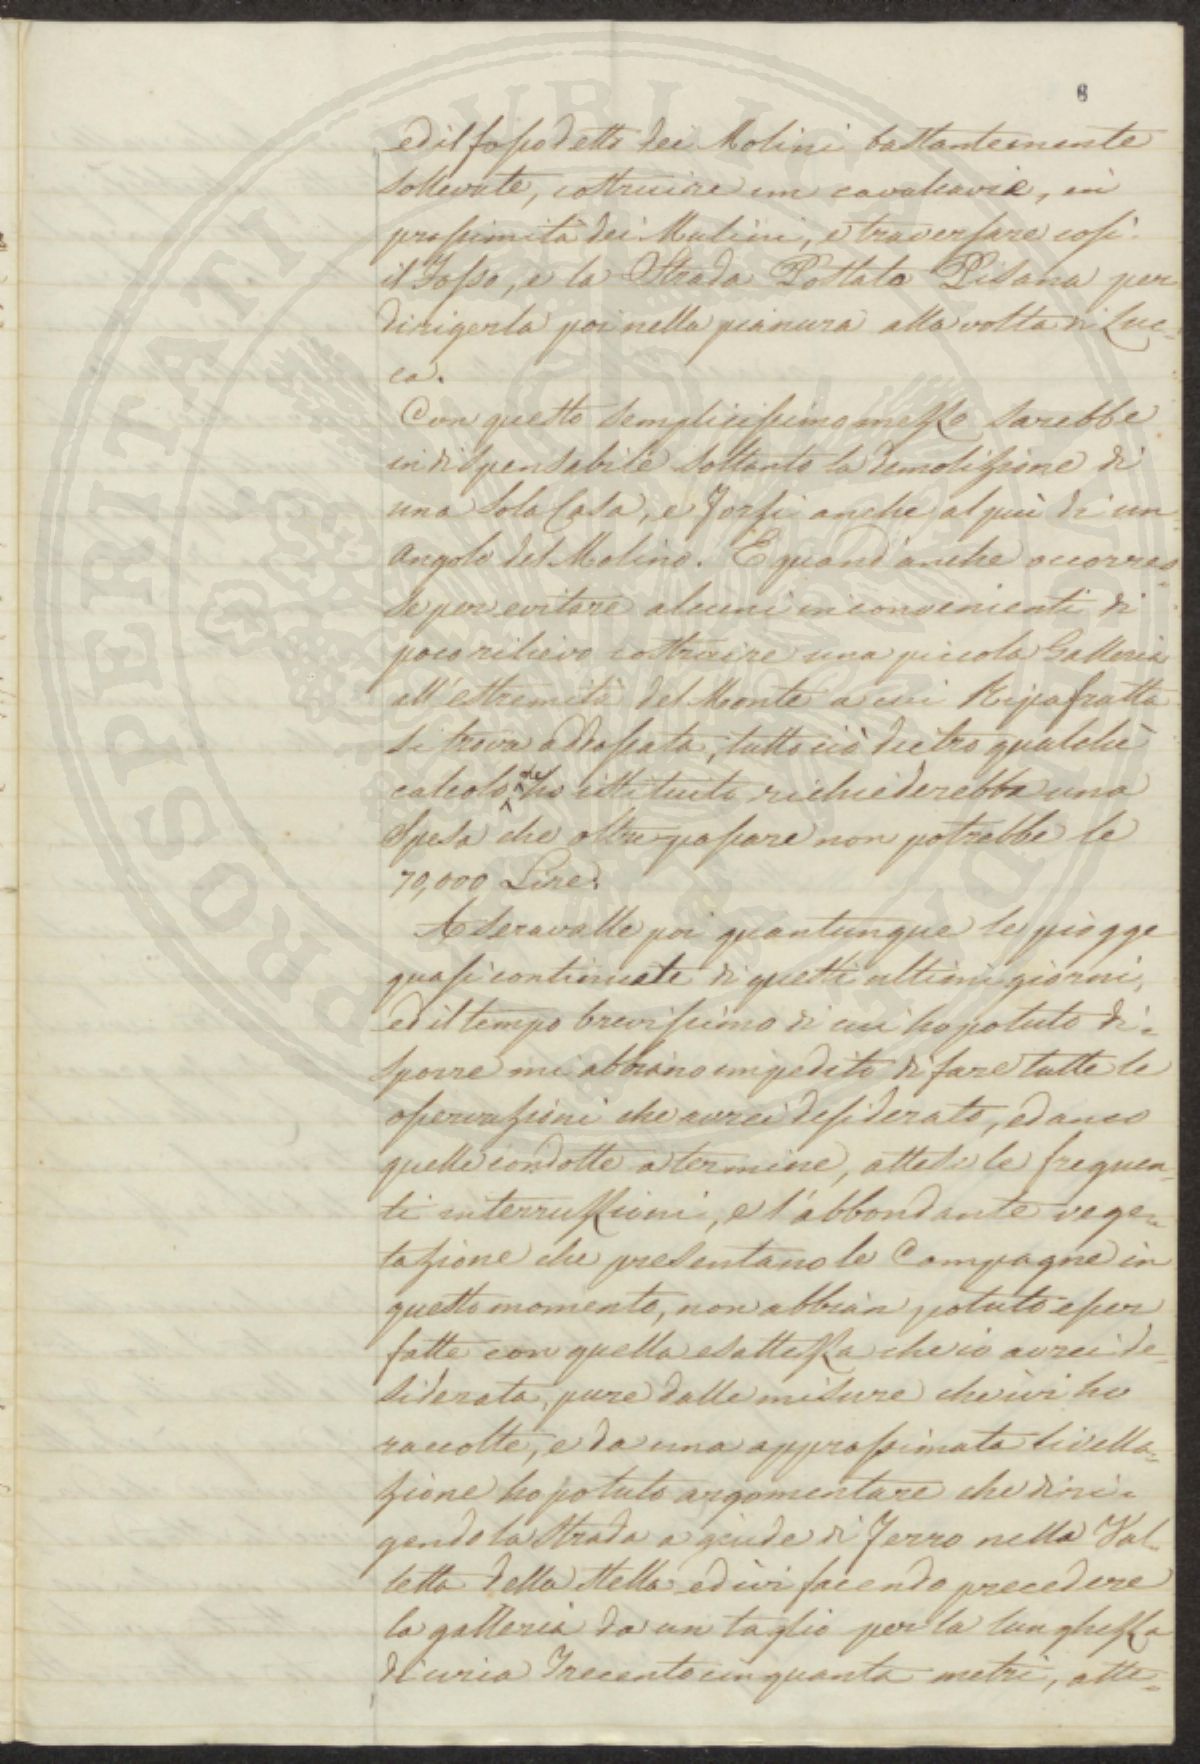 8
ed il fosso detto dei Molini bastantemente
sollevate, costruire un cavalcavie, in
prossimità dei Mulini, e traversare così
il Fosso, e la Strada Postale Pisana per
dirigerla poi nella pianura alla volta di Luc-
ca.
Con questo semplicissimo mezzo sarebbe
indispensabile soltanto la demolizione di
una sola Casa, e forsi anche al più di un
Angolo del Molino. E quand'anche occorres-
se per evitare alcuni inconvenienti di
poco rilievo costruire una piccola Galleria
all'estremità del Monte a cui Ripafratta
si trova adossata, tutto ciò dietro qualche
calcolo che ho istituito richiederebbe una
Spesa che oltrepassare non potrebbe le
70,000 Lire.
A Seravalle poi quantunque le piogge
quasi continuate di questi ultimi giorni,
ed il tempo brevissimo di cui ho potuto di-
sporre mi abbiano impedito di fare tutte le
osservazioni che avrei desiderato, ed anco
quelle condotte a termine, attese le frequen-
ti interruzzioni, e l'abbondante vege-
tazione che presentano le Campagne in
questo momento, non abbian potuto esser
fatte con quella esattezza che io avrei de-
siderata, pure dalle misure che ivi ho
raccolte, e da una approssimata livella-
zione ho potuto argomentare che diri-
gendo la Strada a guide di Ferro nella Val-
letta della Stella ed ivi facendo precedere
la galleria da un taglio per la lunghezza
di circa Trecentocinquanta metri, atte-
PROSPERITATI PUBLICAE